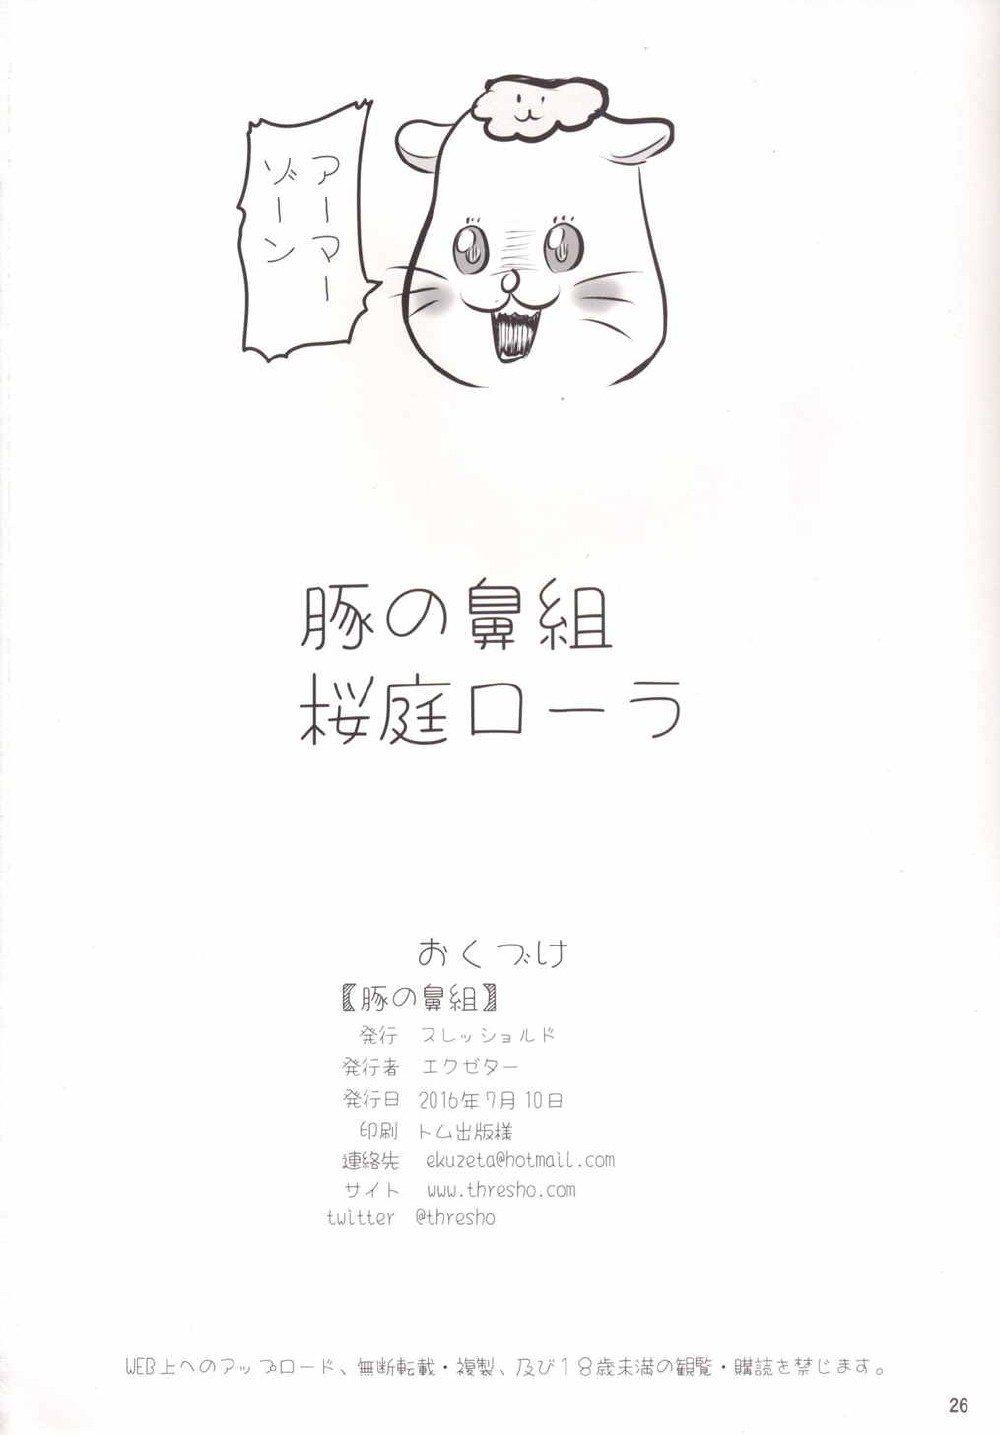 アーマー
ゾーン
豚の鼻組
桜庭ローラ
おくづけ
〖豚の鼻組〗
発行 スレッショルド
発行者 エクゼター
発行日 2016年7月10日
印刷 トム出版様
連絡先 ekuzeta@hotmail.com
サイト www.thresho.com
twitter @thresho
WEB上へのアップロード、無断転載・複製、及び18歳未満の観覧・購読を禁じます。
26